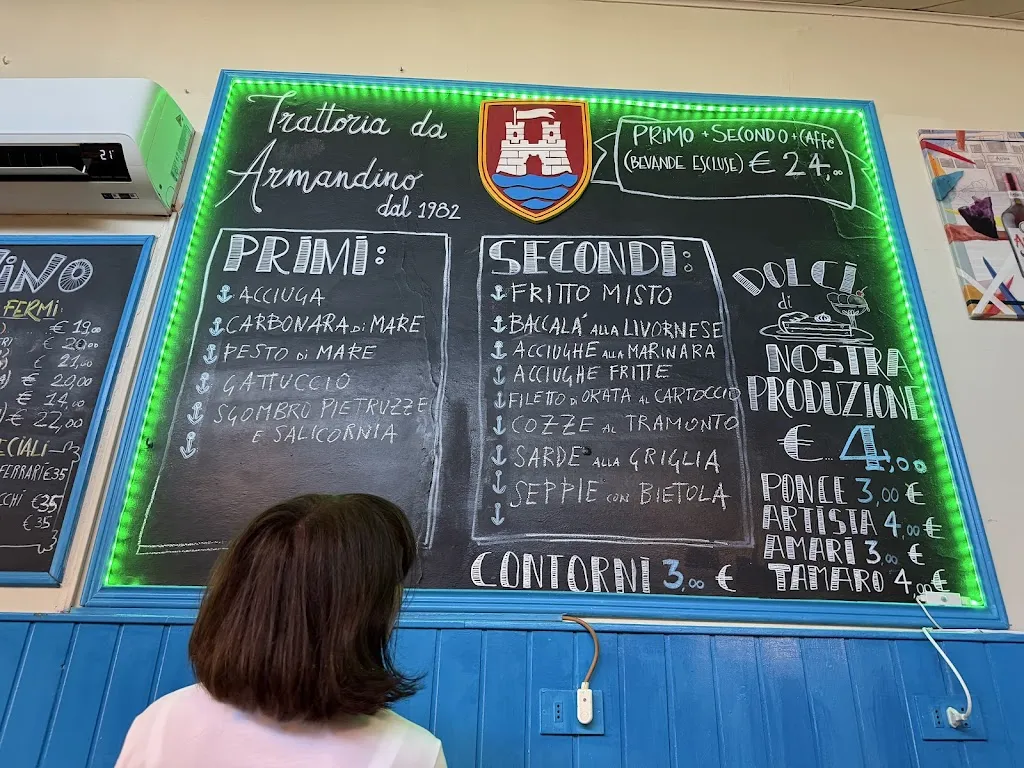 21
Trattoria da
Armandino
dal 1982
PRIMO + SECONDO + CAFFè
(BEVANDE ESCLUSE) € 24,00
PRIMI:
ACCIUGA
CARBONARA di MARE
PESTO di MARE
GATTUCCIO
SGOMBRO PIETRUZZE
E SALICORNIA
SECONDI:
FRITTO MISTO
BACCALÁ ALLA LIVORNESE
ACCIUGHE ALLA MARINARA
ACCIUGHE FRITTE
FILETTO DI ORATA AL CARTOCCIO
COZZE AL TRAMONTO
SARDE ALLA GRIGLIA
SEPPIE CON BIETOLA
CONTORNI 3,00 €
DOLCI
di
NOSTRA
PRODUZIONE
€ 4,00
PONCE 3,00 €
ARTISTA 4,00 €
AMARI 3,00 €
TAMARO 4,00 €
INO
FERMI:
€ 19,00
€ 20,00
€ 21,00
€ 20,00
€ 14,00
€ 22,00
ECIALI
FERRARI €35
CCHI €35
€35